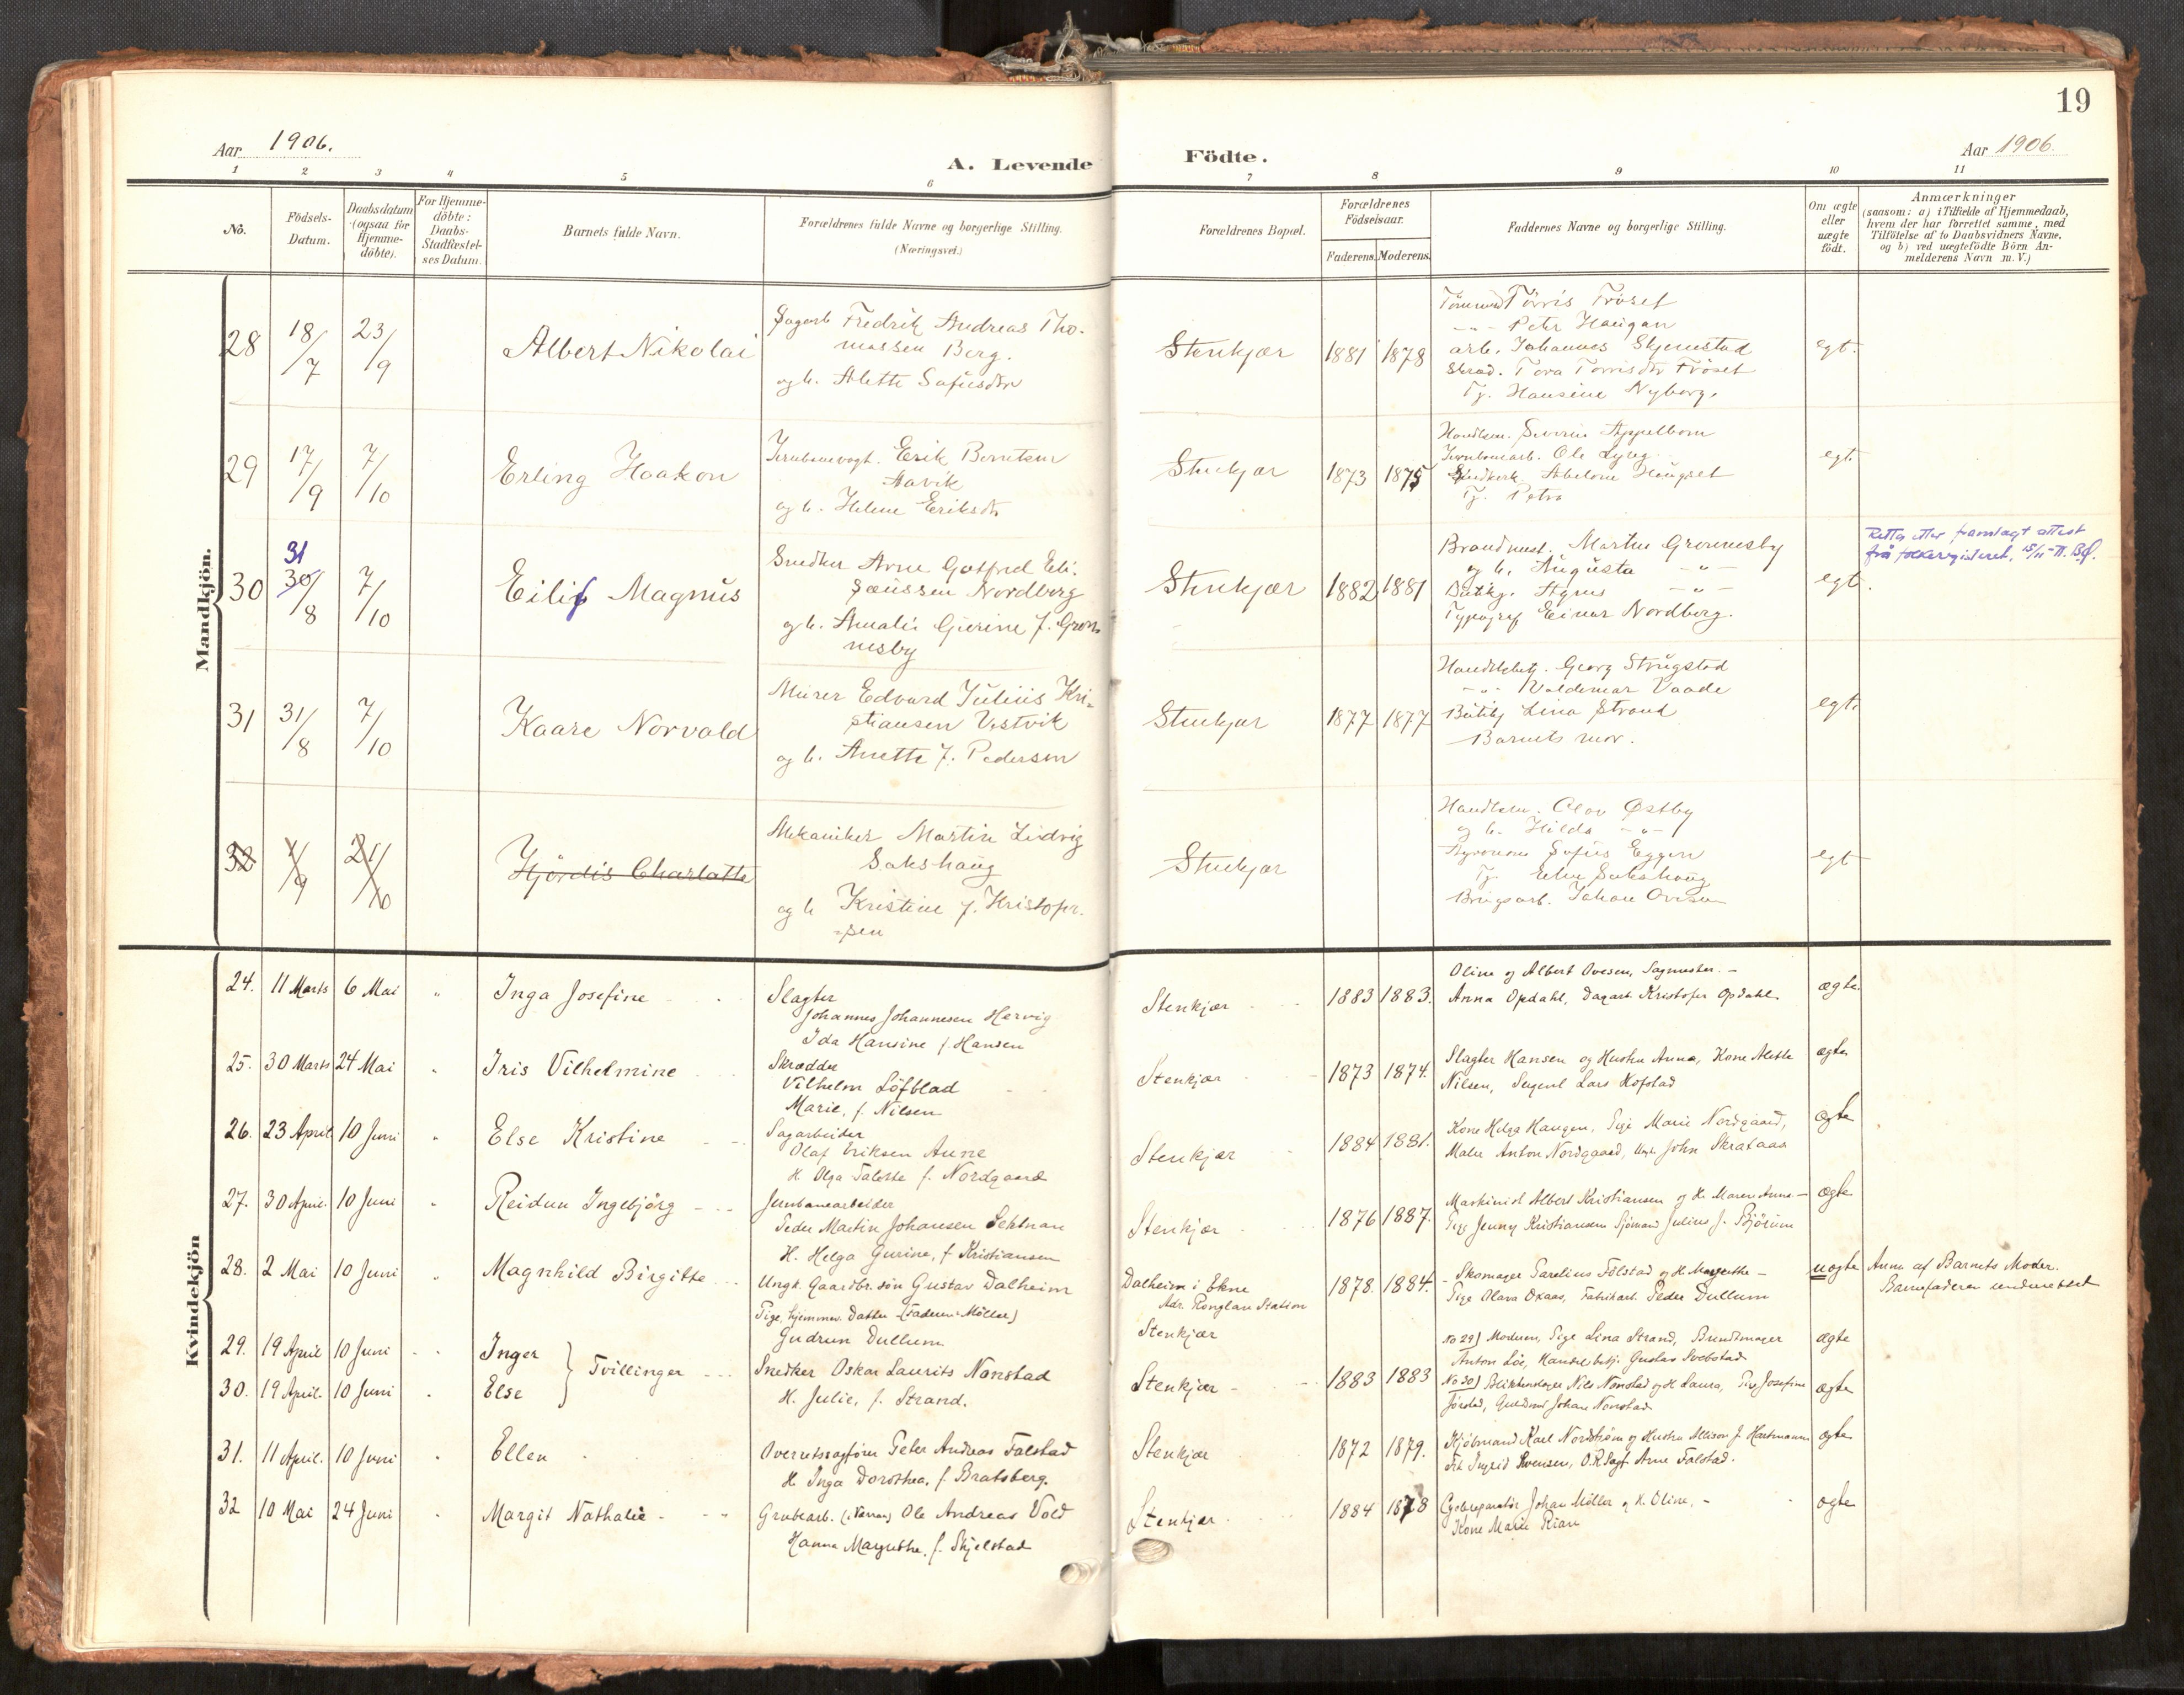 19
Aar 1906.
A. Levende Födte.
Aar 1906.
1 2 3 4 5 6 7 8 9 10 11
No.
Födsels-
Datum.
Daabsdatum
(ogsaa for
Hjemme-
döbte).
For Hjemme-
döbte:
Daabs-
Stadfæstel-
ses Datum.
Barnets fulde Navn.
Forældrenes fulde Navne og borgerlige Stilling.
(Næringsvei.)
Forældrenes Bopæl.
Forældrenes
Födselsaar.
Faderens. Moderens.
Faddernes Navne og borgerlige Stilling.
Om ægte
eller
uægte
födt.
Anmærkninger
(saasom: a) i Tilfælde af Hjemmedaab,
hvem der har forrettet samme, med
Tilföielse af to Daabsvidners Navne,
og b) ved uægtefödte Börn An-
melderens Navn m. V.)
Mandkjön.
28 18/7 23/9 Albert Nikolai
Fredrik Andreas Tho-
massen Berg.
og h. Alette
Stenkjær 1881 1878
Törris Fröset
-"- Peter Haugan
arb. Johannes Skjemstad
Tora Törrisdtr Fröset
Pj. Hansine Nyborg.
egt.
29 17/9 7/10 Erling Haakon
Jernbanevogt. Erik Berntsen
Aavik
og h. Helene Eriksdtr
Stenkjær 1873 1875
Handlsm. Appelbom
Jernbanearb. Ole Lyng
Abelone Haugset
Pj. Petra
egt.
30 31 30/8 7/10 Eilif Magnus
Snedker Arne Gotfred Eli-
sæussen Nordberg
og h. Amalie Gurine f. Grön-
nesby
Stenkjær 1882 1881
Martin Grönnesby
og h. Augusta -"-
Butikj. Agnes -"-
Typograf Einar Nordberg.
egt.
Rettet etter framlagt attest
frå folkeregisteret,
31 31/8 7/10 Kaare Norvald
Murer Edvard Julius Kri-
stiansen Vestvik
og h. Anette f. Pedersen
Stenkjær 1877 1877
Handelsbetj. Georg Strugstad
-"- Valdemar Vaade
Butikj Lina Strand
Barnets mor.
egt.
32 1/9 21/10 Hjördis Charlatte
Mekaniker Martin Ludvig
Sakshaug
og h Kristine f. Kristofer-
sen
Stenkjær
Handlsm. Olav Østby
og h. Hilda -"-
Sofus Eggen
Pj. Sakshaug
Brugsarb. Johan Ovesen
egt
Kvindekjön
24. 11 Marts 6 Mai " Inga Josefine
Slagter
Johannes Johannesen Hervig
Ida Hansine f. Hansen
Stenkjær 1883 1883.
Oline og Albert Ovesen, Sagmester. -
Anna Opdahl, Dagarb. Kristofer Opdahl.
ægte.
25. 30 Marts 24 Mai " Iris Vilhelmine
Skrædder
Vilhelm Löfblad
Marie, f. Nilsen
Stenkjær 1873 1874.
Slagter Hansen og Hustru Anna, Kone Alette
Nilsen, Lars Hofstad
ægte
26. 23 April 10 Juni " Else Kristine
Sagarbeider
Olaf Eriksen Aune
H. Olga Talette f. Nordgaard
Stenkjær 1884 1881.
Kone Helga Haugen, Pige Marie Nordgaard,
Maler Anton Nordgaard, Ungk. John Skrataas
ægte
27. 30 April. 10 Juni " Reidun Ingebjörg
Jernbanearbeider
Peder Martin Johansen Lehtnan
H. Helga Gurine, f. Kristiansen
Stenkjær 1876 1887.
Maskinist Albert Kristiansen og H. Maren Anna -
Pige Jenny Kristiansen Sjömand Julius J. Bjørum
ægte
28. 2 Mai 10 Juni " Magnhild Birgitte
Ungk. Gaardbr. sön Gustav Dalheim
Pige, hjemmev. Datter (Faderen: Möller)
Gudrun Dullum
Dalheim i Ekne
Adr. Ronglan Station
Stenkjær
1878. 1884.
Skomager Parelius Folstad og H. Margrethe -
Pige Olava Oxaas, Fabrikarb. Peder Dullum
uægte
Anm. af Barnets Moder.
Barnefaderen underrettet
29. 19 April 10 Juni " Inger
30. 19 April. 10 Juni " Else
} Tvillinger
Snedker Oskar Laurits Nonstad
H. Julie, f. Strand.
Stenkjær 1883 1883
No 29) Moderen, Pige Lina Strand, Bundtmager
Anton Löe, Handelsbetj. Gustav Svebstad
No 30) Blikkenslager Nils Nonstad og H Laura, Pige Josefine
Jörstad, Guldsmed Johan Nonstad
ægte
ægte
31. 11 April. 10 Juni " Ellen
Overretssagfører Peter Andreas Falstad
H. Inga Dorothea, f. Bratsberg.
Stenkjær 1872 1879.
Kjöbmand Karl Nordström og Hustru Allison f. Hartmann
Frk Ingrid Svensen, O.R.Sagf. Arne Falstad.
ægte
32 10 Mai 24 Juni " Margit Nathalie
Grubearb. Ole Andreas Vold
Hanna Margrethe, f. Skjelstad
Stenkjær 1884 1878
Cyclereparatör Johan Möller og H. Oline, -
Kone Marie Rian
ægte